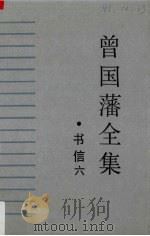 曾国藩全集
·书信六